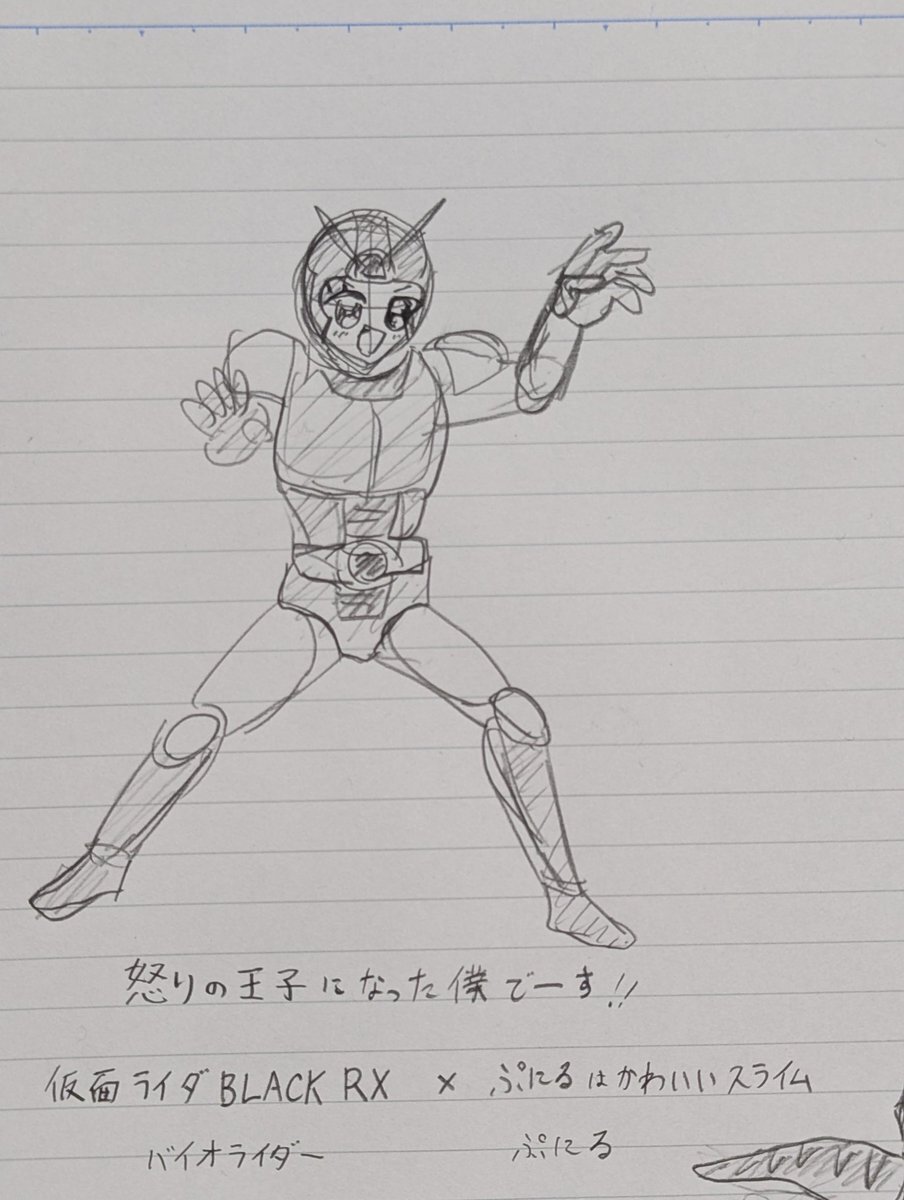 怒りの王子になった僕でーす!!
仮面ライダBLACK RX × ぷにるはかわいいスライム
バイオライダー ぷにる